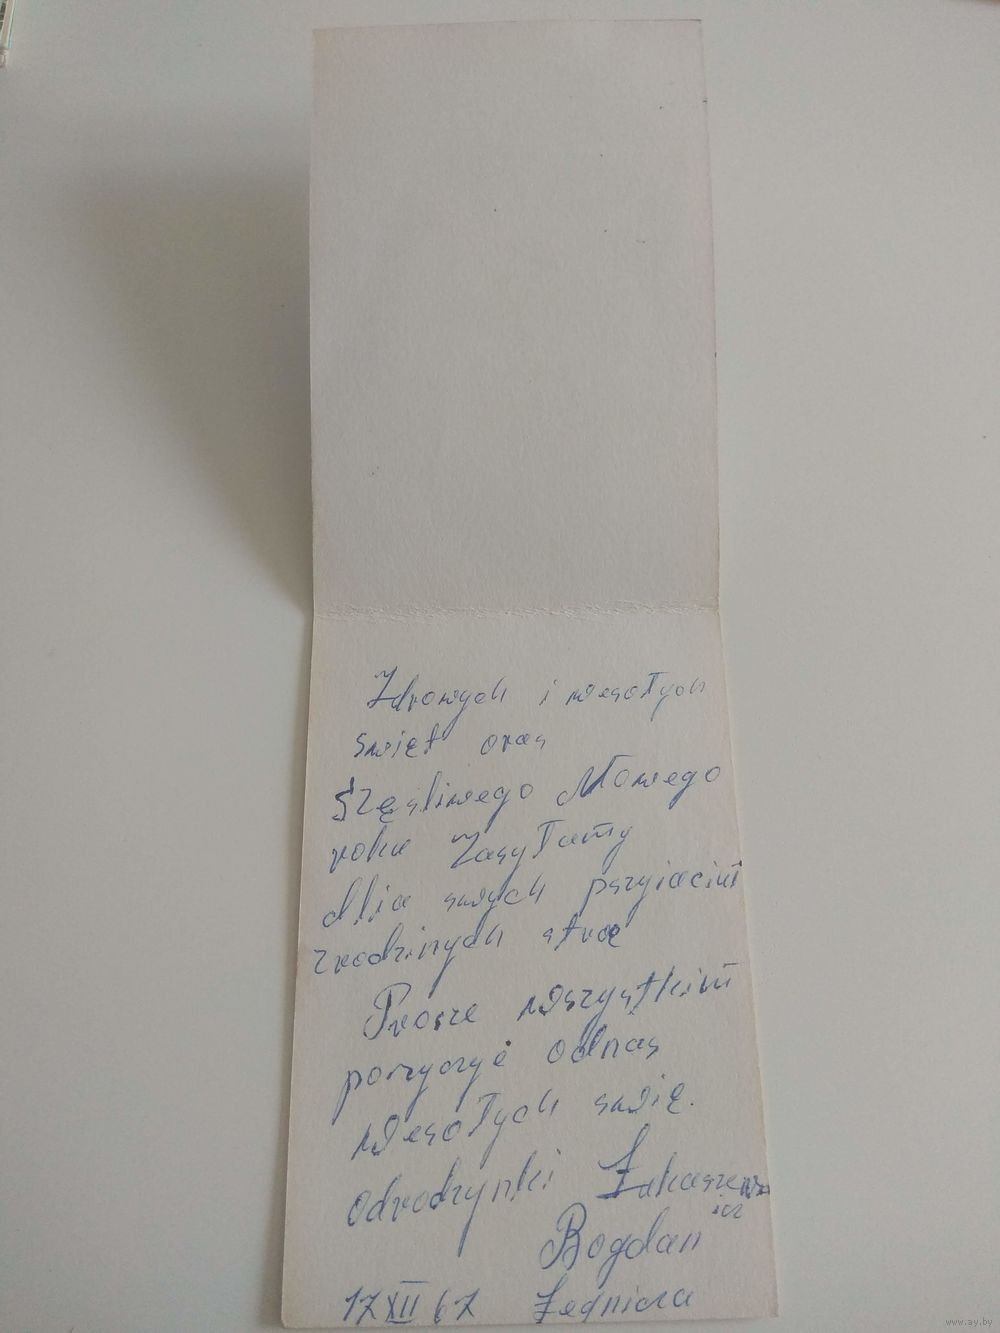 Zdrowych i wesołych
swięt oras
szęsliwego Nowego
roku Zasyłamy
dlia swych pszyiaciuł
zrodzinych stron
Prosze wszystkim
porzyczyć odnas
wesołych swię.
odrodzynki Łukaszewicz
Bogdan
17 XII 67 Legnica
www.ay.by